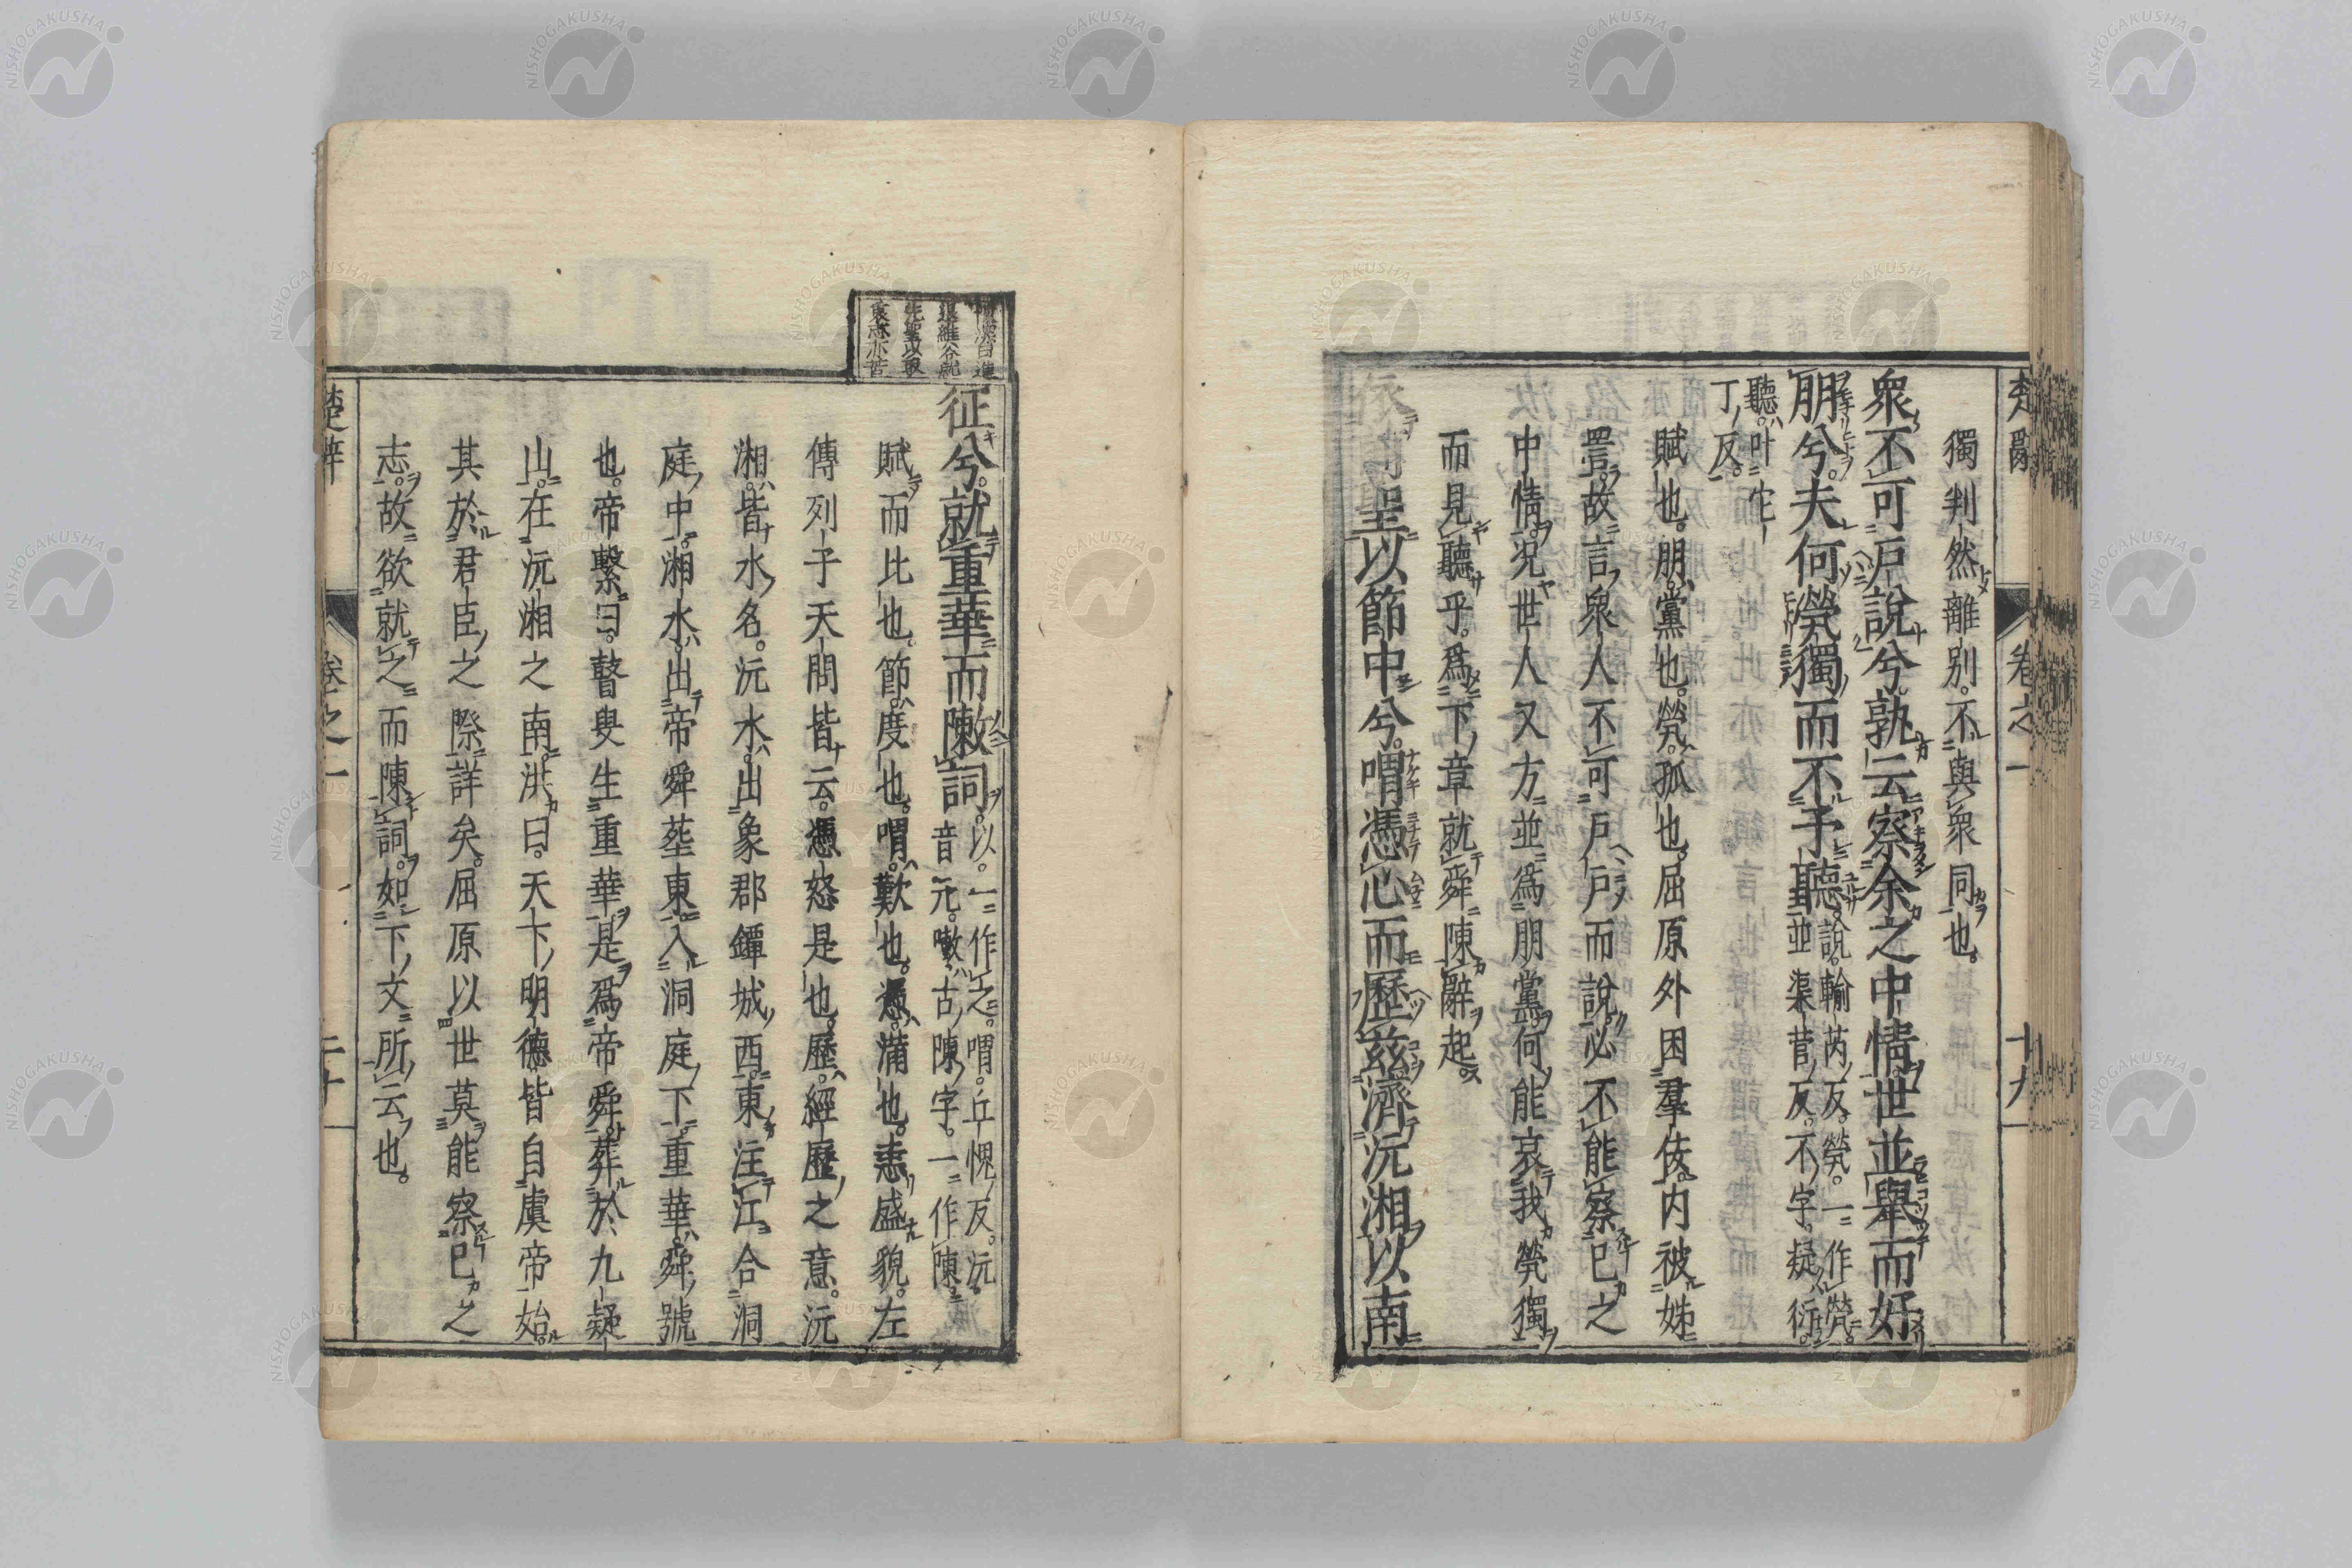 楚辭 卷之一 十九
獨判然離別。不與衆同也。
衆不可戸說兮。孰云察余之中情。世並舉而好
朋兮。夫何煢獨而不予聽。說。輸芮反。煢。一作㷀。
並渠營反。不字疑衍。
聽。叶它
丁反。
賦也。朋。黨也。煢。孤也。屈原外困羣佞。内被姊
詈。故言衆人不可戸戸而說。必不能察己之
中情。况世人又方並爲朋黨。何能哀我煢獨
而見聽乎。爲下章就舜陳辭起。
依前聖以節中兮。喟憑心而歷茲。濟沅湘以南
征兮。就重華而敶詞。以。一作之。喟。丘愧反。沅。
音元。敶。古陳字。一作陳。
賦而比也。節。度也。喟。歎也。憑。滿也。恚盛貌。左
傳列子天問皆云。憑怒是也。歷。經歷之意。沅
湘。皆水名。沅水。出象郡鐔城西。東注江。合洞
庭中。湘水。出帝舜葬東。入洞庭下。重華。舜號
也。帝繫曰。瞽叟生重華。是爲帝舜。葬於九疑
山。在沅湘之南。洪曰。天下明德。皆自虞帝始。
其於君臣之際。詳矣。屈原以世莫能察己之
志。故欲就之而陳詞。如下文所云也。
先聖以
哀亦苦
楚辭 卷之一 二十